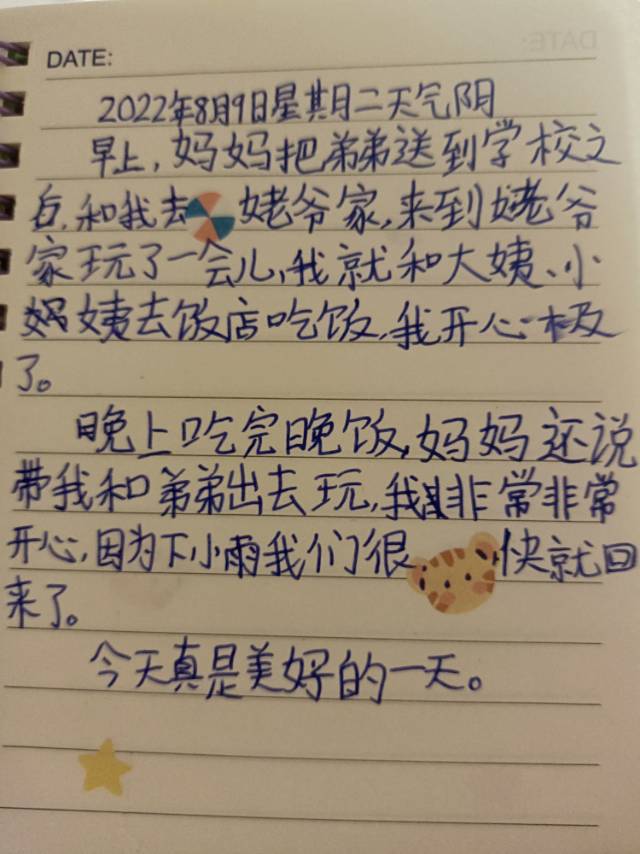 DATE:
2022年8月9日星期二天气阴
早上,妈妈把弟弟送到学校之
后,和我去姥爷家,来到姥爷
家玩了一会儿,我就和大姨、小
姨去饭店吃饭,我开心极
了。
晚上吃完晚饭,妈妈还说
带我和弟弟出去玩,我非常非常
开心,因为下小雨我们很快就回
来了。
今天真是美好的一天。